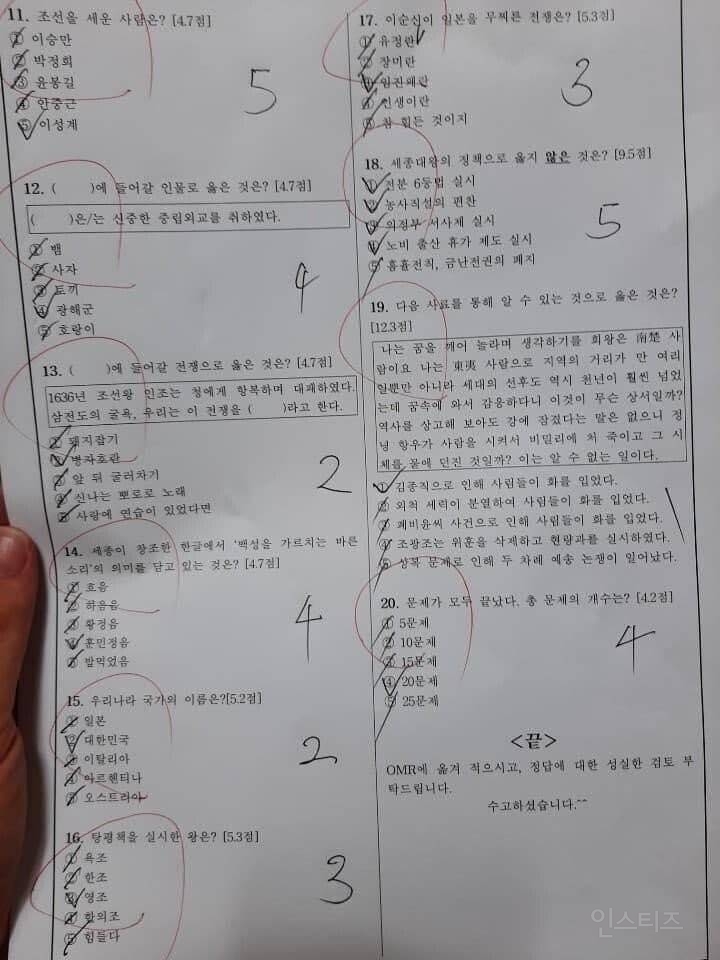 11. 조선을 세운 사람은? [4.7점]
① 이승만
② 박정희
③ 윤봉길
④ 안중근
⑤ 이성계
5
12. ( )에 들어갈 인물로 옳은 것은? [4.7점]
( )은/는 신중한 중립외교를 취하였다.
① 뱀
② 사자
③ 토끼
④ 광해군
⑤ 호랑이
4
13. ( )에 들어갈 전쟁으로 옳은 것은? [4.7점]
1636년 조선왕 인조는 청에게 항복하며 대패하였다.
삼전도의 굴욕, 우리는 이 전쟁을 ( )라고 한다.
① 돼지잡기
② 병자호란
③ 앞 뒤 굴러차기
④ 신나는 뽀로로 노래
⑤ 사랑에 연습이 있었다면
2
14. 세종이 창조한 한글에서 '백성을 가르치는 바른
소리'의 의미를 담고 있는 것은? [4.7점]
① 흐음
② 하음음
③ 황정음
④ 훈민정음
⑤ 밥먹었음
4
15. 우리나라 국가의 이름은?[5.2점]
① 일본
② 대한민국
③ 이탈리아
④ 아르헨티나
⑤ 오스트리아
2
16. 탕평책을 실시한 왕은? [5.3점]
① 욕조
② 한조
③ 영조
④ 합의조
⑤ 힘들다
3
17. 이순신이 일본을 무찌른 전쟁은? [5.3점]
① 유정란
② 장미란
③ 임진왜란
④ 인생이란
⑤ 참 힘든 것이지
3
18. 세종대왕의 정책으로 옳지 않은 것은? [9.5점]
① 전분 6등법 실시
② 농사직설의 편찬
③ 의정부 서사제 실시
④ 노비 출산 휴가 제도 실시
⑤ 흠휼전칙, 금난전권의 폐지
5
19. 다음 사료를 통해 알 수 있는 것으로 옳은 것은?
[12.3점]
나는 꿈을 깨어 놀라며 생각하기를 회왕은 南楚 사
람이요 나는 東夷 사람으로 지역의 거리가 만 여리
일뿐만 아니라 세대의 선후도 역시 천년이 훨씬 넘었
는데 꿈속에 와서 감응하다니 이것이 무슨 상서일까?
역사를 상고해 보아도 강에 잠겼다는 말은 없으니 정
녕 항우가 사람을 시켜서 비밀리에 쳐 죽이고 그 시
체를 물에 던진 것일까? 이는 알 수 없는 일이다.
① 김종직으로 인해 사림들이 화를 입었다.
② 외척 세력이 분열하여 사림들이 화를 입었다.
③ 폐비윤씨 사건으로 인해 사림들이 화를 입었다.
④ 조광조는 위훈을 삭제하고 현량과를 실시하였다.
⑤ 상복 문제로 인해 두 차례 예송 논쟁이 일어났다.
20. 문제가 모두 끝났다. 총 문제의 개수는? [4.2점]
① 5문제
② 10문제
③ 15문제
④ 20문제
⑤ 25문제
4
<끝>
OMR에 옮겨 적으시고, 정답에 대한 성실한 검토 부
탁드립니다.
수고하셨습니다.^^
인스티즈